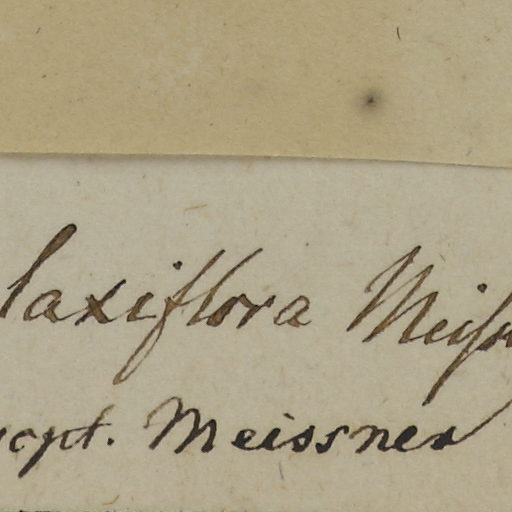 laxiflora Meiſsn
scpt. Meissner